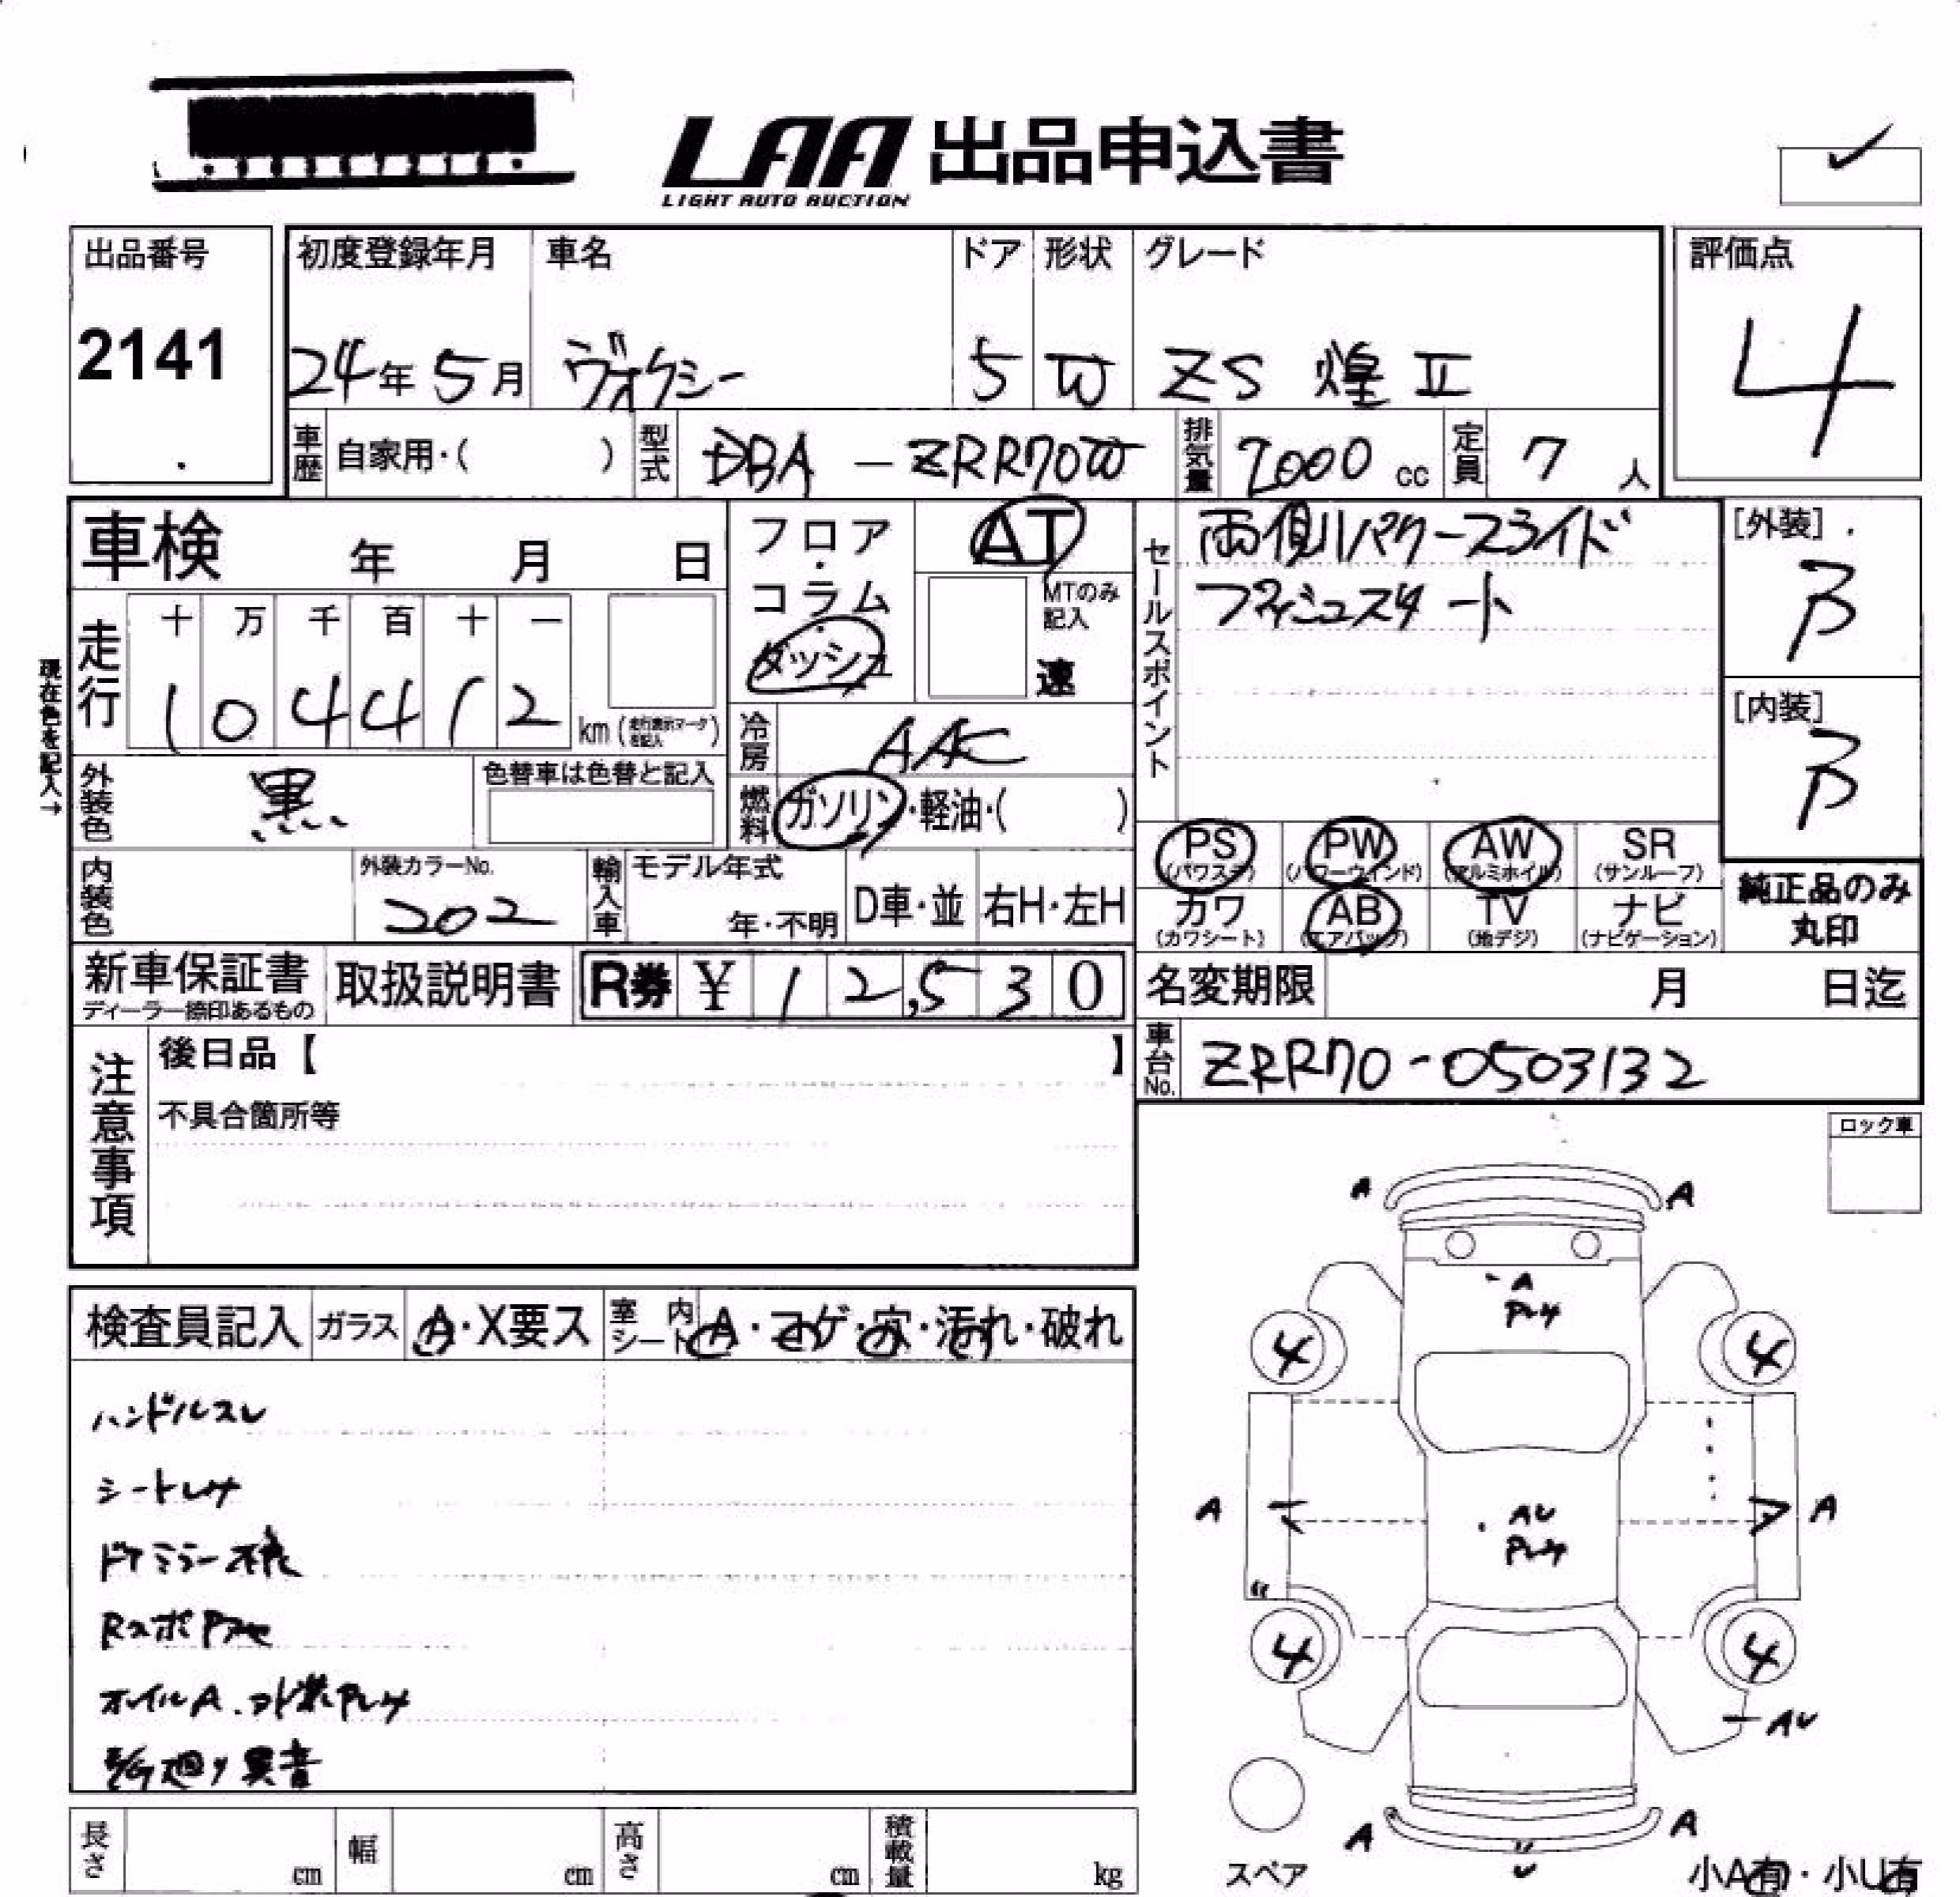 LAA 出品申込書
LIGHT AUTO AUCTION
出品番号
2141
初度登録年月
24年 5月
車名
ヴォクシー
ドア
5
形状
W
グレード
ZS 煌 II
評価点
4
車歴 自家用・( )
型式 DBA - ZRR70W
排気量 2000 cc
定員 7 人
車検 年 月 日
フロア・コラム・ダッシュ
AT
MTのみ記入
速
セールスポイント
両側パワースライド
[外装]
B
[内装]
B
現在色を記入→
走行
十 万 千 百 十 一
1 0 4 4 1 2 km (走行表示マークを記入)
冷房 AAC
外装色 黒
色替車は色替と記入
燃料 ガソリン・軽油・( )
PS (パワステ) PW (パワーウインド) AW (アルミホイル) SR (サンルーフ)
カワ (カワシート) AB (エアバッグ) TV (地デジ) ナビ (ナビゲーション)
純正品のみ
丸印
内装色
外装カラーNo.
202
輸入車
モデル年式
年・不明
D車・並
右H・左H
新車保証書
ディーラー捺印あるもの
取扱説明書
R券 ¥ 1 2,5 3 0
名変期限 月 日迄
車台No. ZRR70-0503132
注意事項
後日品【 】
不具合箇所等
ロック車
検査員記入 ガラス A・X要ス 室内シート A・コゲ・穴・汚れ・破れ
ハンドルスレ
シートレサ
ドアミラー不良
RスポP
オイルA.外装Pレサ
異音
A A
A
4 4
A A
AU
4 4
AU
A A
U
スペア
小A有・小U有
長さ cm
幅 cm
高さ cm
積載量 kg